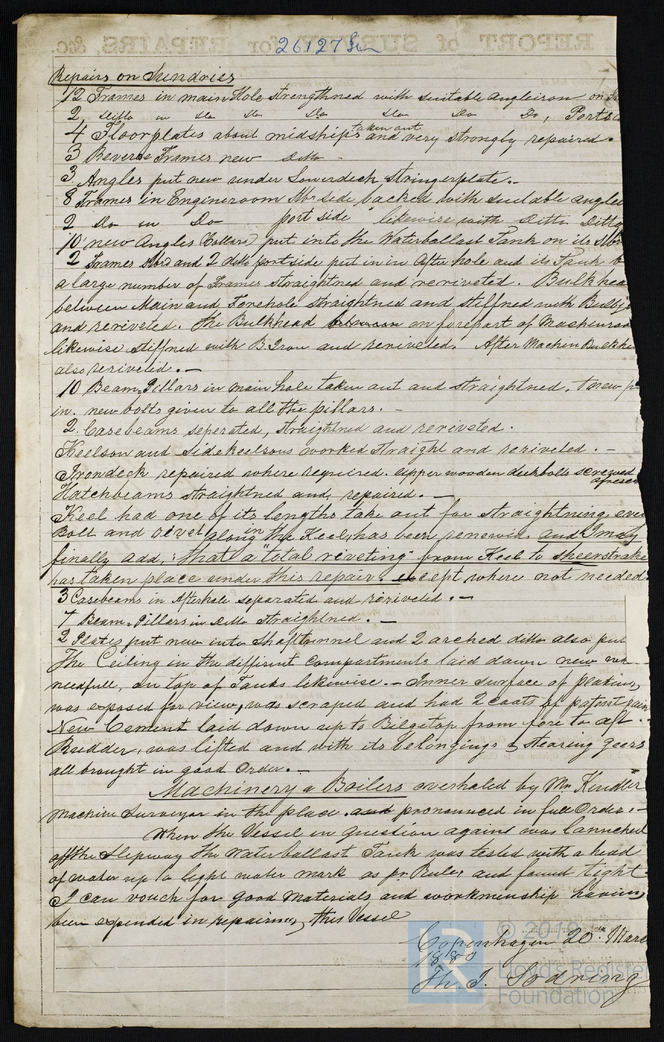 26127 Iron
REPORT of SURVEY for REPAIRS, &c.
Repairs on Sundries
12 Frames in main Hole strengthned with suitable Angleiron on
2 ditto in do do do do do Do, Ports
4 Floorplates about midships taken out and very strongly repaired.
3 Reverse Frames new ditto -
3 Angles put new under Lowerdeck Stringerplate. -
8 Frames in Engineroom Stbrdside backed with suitable angle
2 Do in Do port side likewise with Ditto Ditto
10 new Angles (Collars) put into the Waterballast Tank on its
2 Frames Stbrd and 2 ditto portside put in in After hole and its Tank
a large number of Frames straightned and rerivited. Bulkhea
between Main and Forehole straightned and stifned with Bulb
and rerivited. the Bulkhead between on forepart of Mashinroo
likewise stiffned with B. Iron and reriveted. After Machin Bulkhe
also reriveted. -
10 Beam Pillars in main hole taken out and straightned, 1 new p
in. new bolts given to all the pillars. -
2 Casebeams seperated, straightned and rerivited.
Keelson and Sidekeelsons worked straight and rerivited. -
Irondeck repaired where required. upper wooden deckbolts screwed
afresh
Hatchbeams straightned and repaired. -
Keel had one of its lengths take out for straightning, ever
Bolt and rivet along in the Keel has been renewin and I may
finally add, : that a "total riveting" from Keel to Sheerstrake
has taken place under this repair. except where not needed
3 Casebeams in Afterhole separated and reriveted. -
7 Beam Pillers in Ditto straightned. -
2 Plates put new into Shafttunnel and 2 arched ditto also put
The Ceiling in the diffirent Compartments laid down new
needfull, on top of Tanks likewise. - Inner surface of plating
was exposed for view, was scraped and had 2 coats of patent pain
New Cement laid down up to Bilgetop from fore to aft.
Rudder, was lifted and with its belongings & Stearing geers
all brought in good Order. -
Machinery & Boilers overhaled by Mr. Kindler
Machine Surveyor in the place. and pronounced in full Order: -
When the Vessel in question against was launched
off the Slipway the Waterballast Tank was tested with a head
of water up to light water mark as pr Rules and found tight
I can vouch for good Materials and workmenship having
been expended in repairing this Vessel
Copenhagen 20 Marc
1880
Th. J. Sodring
© 2019
Lloyd's Register
Foundation